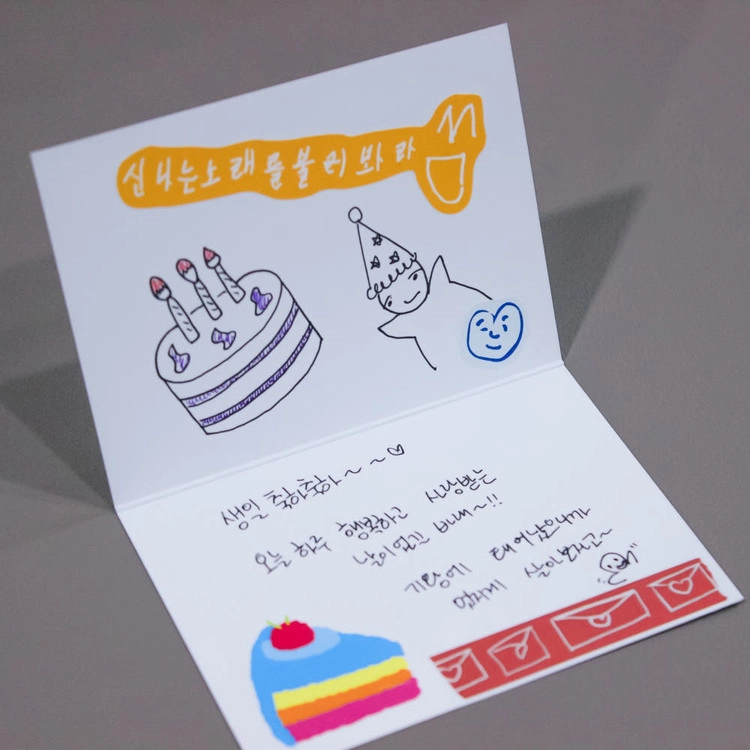 신나는노래를불러봐라
생일 축하축하~~~♡
오늘 하루 행복하고 사랑받는
날이었길 바래~!!
기왕에 태어났으니까
멋지게 살아보자고~